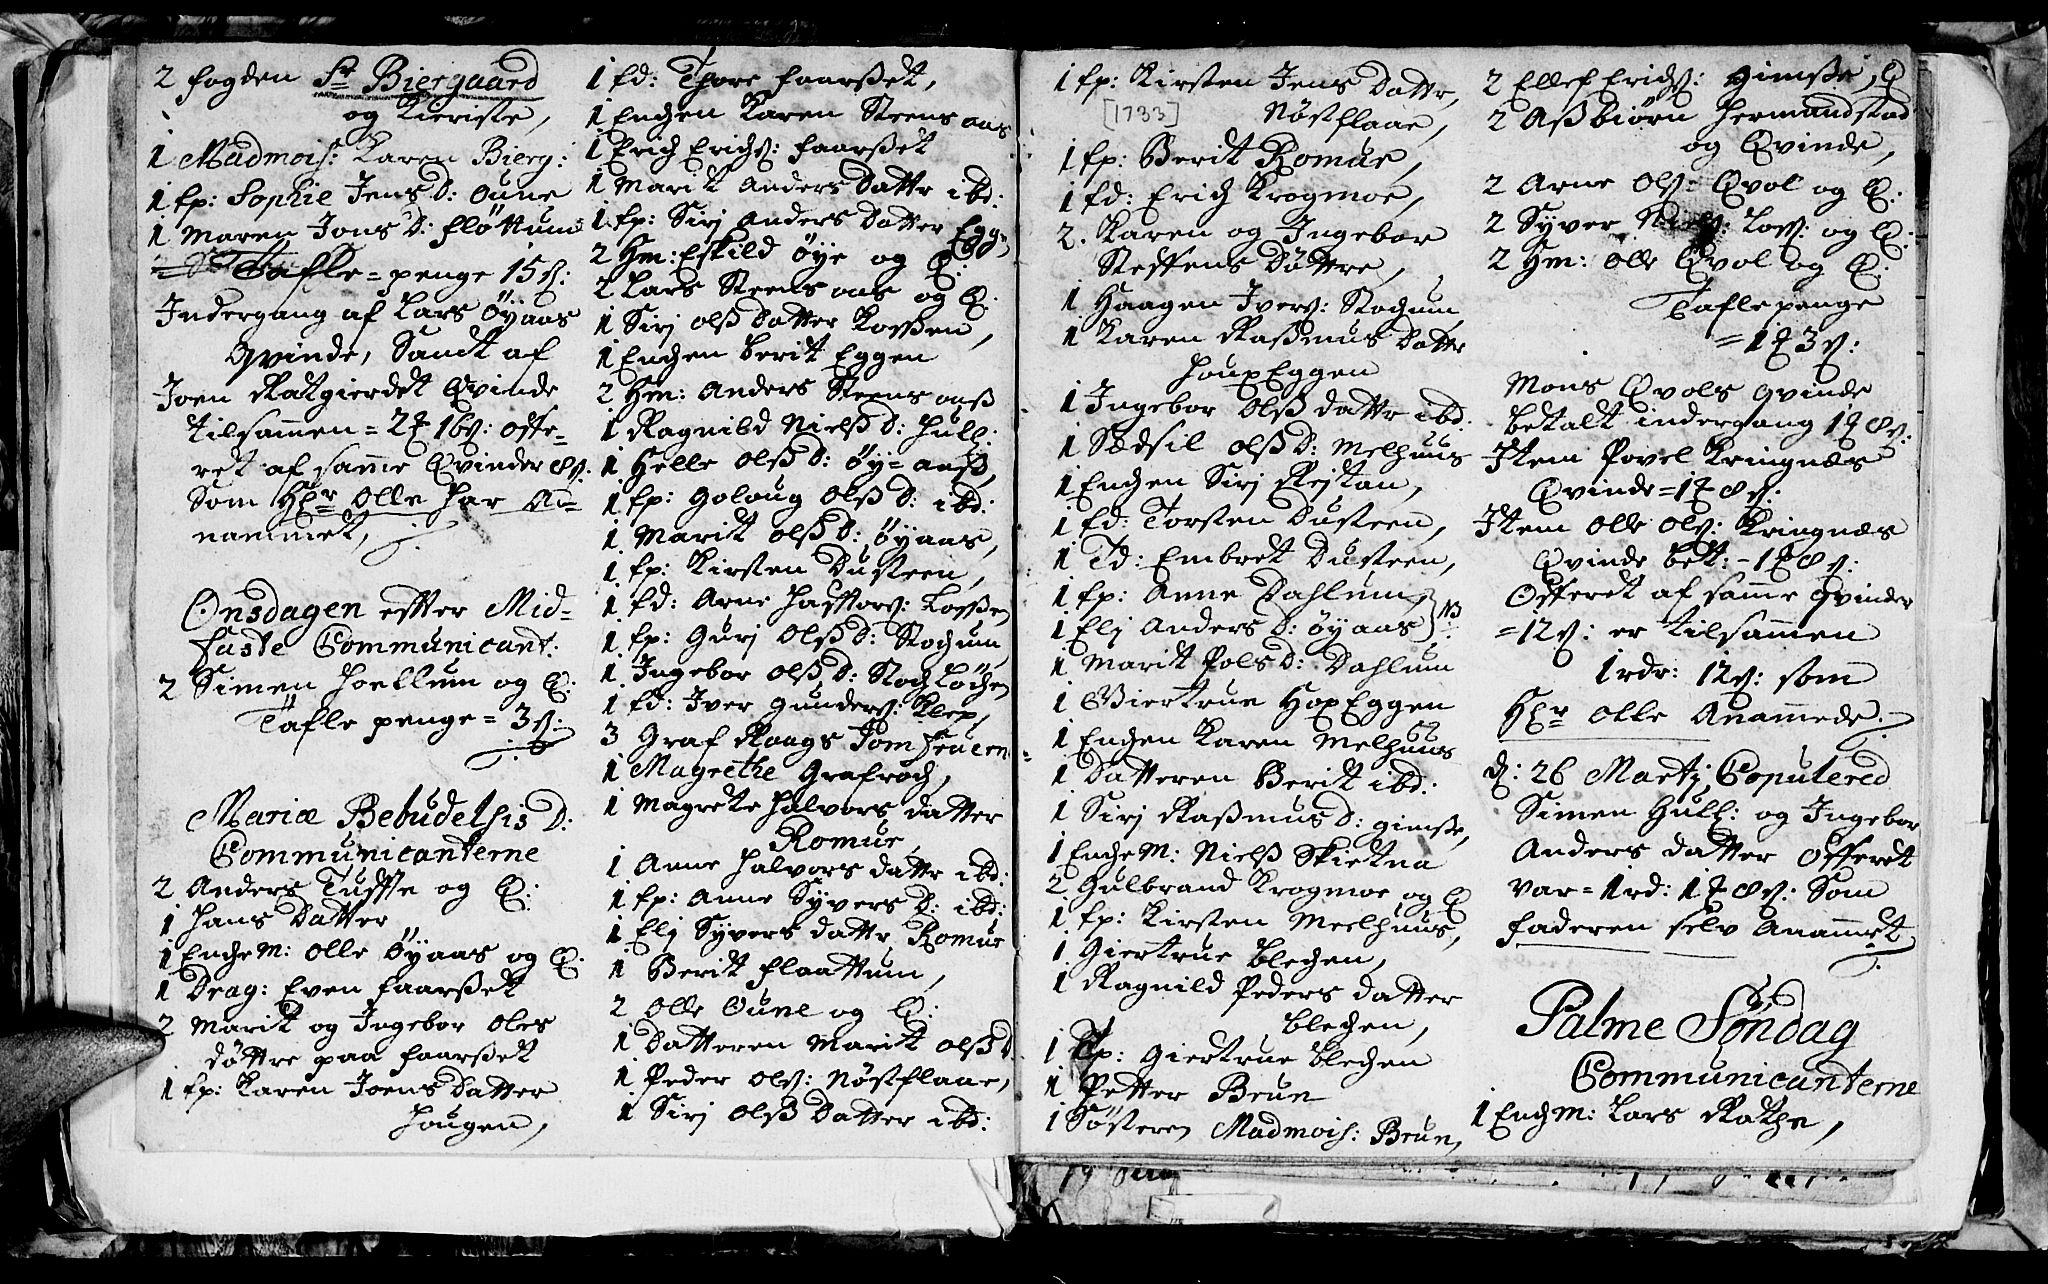 2 fogden Sr Biergaard
og Kieriste,
1 Madmois: Karen Bierg:
1 Ep: Sophie Jens D: Oune
1 Maren Jons D: Fløttum
Tafle=penge 15 s:
Indergang af Lars Öyaas
Qvinde, Samt af
Joen Ratgierdet Qvinde
tilsammen = 2 16s: offe=
ret af samme Qvinder 8s.
Som Hr Olle har An=
nammet,
Onsdagen effter Mid=
faste Communicant:
2 Simen Hoellum og Q:
Tafle penge = 3 s:
Mariæ Bebudelsis D:
Communicanterne
2 Anders Tuffte og Q:
1 Hans Datter
1 Enche M: Olle Öyaas og Q:
1 Drag: Even Faarßet
2 Marit og Ingebor Oles
döttre paa Faarßet
1 Ep: Karen Joens Datter
Hougen,
1 Ed: Thore Faarßet,
1 Enchen Karen Steens aas
1 Erich Erichs: Faarßet
1 Marit Anders Datter ibd:
1 Ep: Sirj Anders Datter Egg:
2 Hm: Eskild Öye og Q:
2 Lars Steens aas og Q:
1 Sirj Olß Datter Loßen,
1 Enchen Berit Eggen
2 Hm: Anders Steens aaß
1 Ragnild Nielß D: Hull:
1 Helle Olß D: Öy=aaß,
1 Ep: Goloug Olß D: ibd:
1 Marit Olß D: Öyaas,
1 Ep: Kirsten Dusteen,
1 Ed: Arne Hafftors: Loßen
1 Ep: Gurj Olß D: Stochum
1 Ingebor Olß D: Stochlöchen
1 Ed: Iver Gunders: Klep,
3 Graf Roags Tomheuern
1 Magrethe Grafroch,
1 Magrete Halvors datter
Romue,
1 Anne Halvors datter ibd:
1 Ep: Anne Syvers D: ibd:
1 Elj Syvers datter Romue
1 Berit Flaattum,
2 Olle Oune og Q:
1 Datteren Marit Olß D
1 Peder Ols: Nöstflaae,
1 Sirj Olß Datter ibd:
1 Ep: Kirsten Jens Dattr,
[1733] Nöstflaae,
1 Ep: Berit Romue,
1 Ed: Erich Krogmoe,
2. Karen og Ingebor
Steffens Döttre,
1 Haagen Ivers: Stochum
1 Karen Raßmus Datter
HoupEggen
1 Ingebor Olß datter ibd:
1 Sædsil Olß D: Melhuus
1 Enchen Sirj Rejtan,
1 Ed: Torsten Dusteen,
1 Td: Embret Dusteen,
1 Ep: Anne Dahlum,
1 Elj Anders D: Öyaas } NB
1 Marit Pols D: Dahlum
1 Giertrue HopEggen
1 Enchen Karen Melhuus
1 Datteren Berit ibd:
1 Sirj Raßmus D: Gimse,
1 Enche M: Nielß Skietna
2 Gulbrand Krogmoe og Q
1 Ep: Kirsten Meelhuus,
1 Giertrue Blechen,
1 Ragnild Peders datter
Blechen,
1 Ep: Giertrue Blechen
1 Petter Brun
1 Søsteren Madmois: Brun,
2 Ellef Erichs: Gimße, Q
2 Aßbiörn Hermandstad
og Qvinde,
2 Arne Ols: Qvol og Q:
2 Syver Niels: Loß: og Q:
2 Hm: Olle Qvol og Q:
Tafle penge
= 1 3 s:
Mons Qvols Qvinde
betalt indergang 1 8 s:
Item Povel Kringnæs
Qvinde = 1 8 s:
Item Olle Ols: Kringnæs
Qvinde bet: - 1 8 s:
Offeret af samme Qvinder
= 12 s: er tilsammen
1 rdr: 12 s: som
Hr Olle Anammede.
d: 26 Martij Copulered
Simen Hull: og Ingebor
Anders datter Offeret
var = 1 rd: 1 8 s: Som
Faderen selv Anammet
Palme Søndag
Communicanterne
1 Ench M: Lars Rathe,